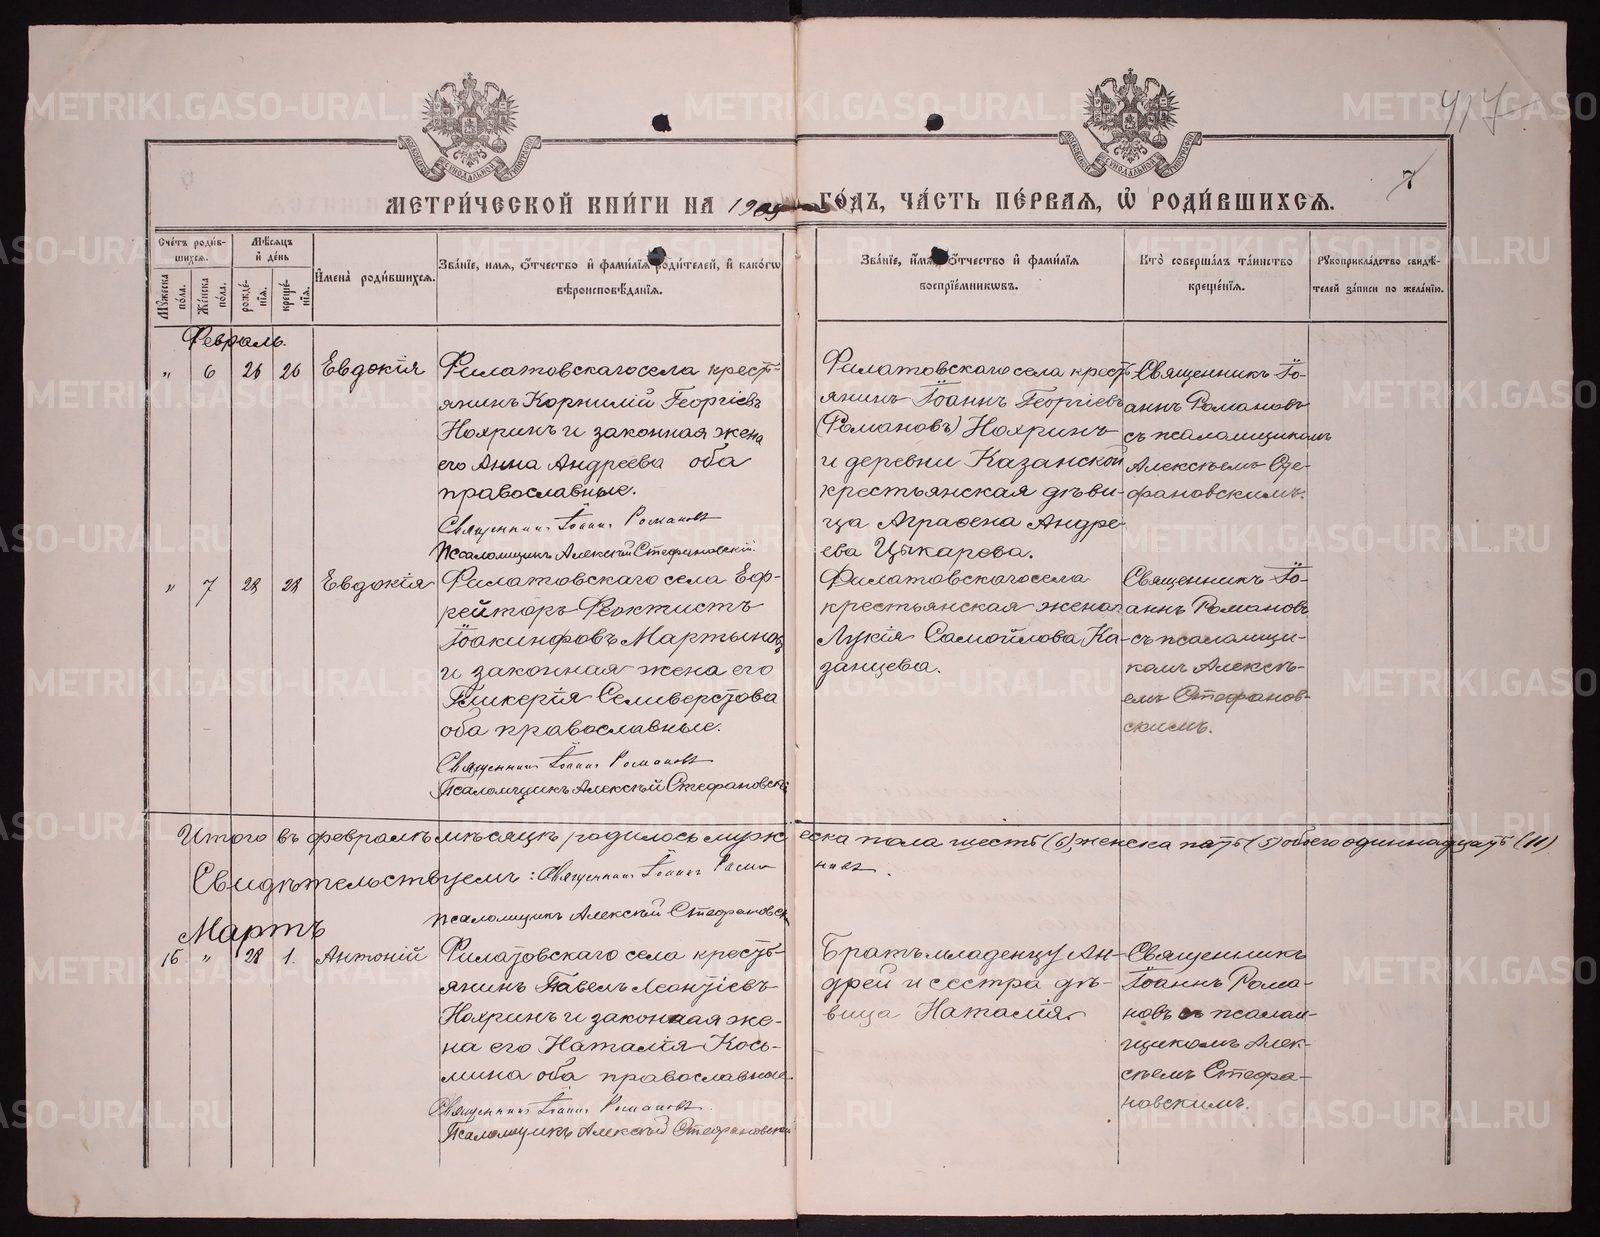 417
7
МЕТРИ́ЧЕСКОЙ КНИ́ГИ НА 1909 ГО́ДЪ, ЧА́СТЬ ПЕ́РВАЯ, Ѡ҆ РОДИ́ВШИХСЯ.
Сче́тъ роди́вшихся.
Мꙋ́жеска по́ла.
Же́нска по́ла.
Мѣ́сяцъ и҆ де́нь
рожде́нїя.
креще́нїя.
И҆мена̀ роди́вшихся.
Зва́нїе, и́мя, ѻ҆́тчество и҆ фами́лїя роди́телей, и҆ како́гѡ
вѣроисповѣ́данїя.
Зва́нїе, и́мя, ѻ҆́тчество и҆ фами́лїя
воспрїе́мниковъ.
Кто̀ соверша́лъ та́инство
креще́нїя.
Рꙋкоприкла́дство свидѣ́-
телей за́писи по жела́нїю.
Февраль.
„ 6 26 26 Евдокія
Филатовскаго села кресть-
янинъ Корнилій Георгіевъ
Нохринъ и законная жена
его Анна Андреева оба
православные.
Священникъ Іоаннъ Романовъ
Псаломщикъ Алексѣй Стефановскій.
Филатовскаго села кресть-
янинъ Іоаннъ Георгіевъ
(Романовъ) Нохринъ
и деревни Казанской
крестьянская дѣви-
ца Аграфена Андре-
ева Цыкарева.
Священникъ Іо-
аннъ Романовъ
съ псаломщикомъ
Алексѣемъ Сте-
фановскимъ.
„ 7 28 28 Евдокія
Филатовскаго села Еф-
рейторъ Феоктистъ
Іоакинфовъ Мартыновъ
и законная жена его
Гликерія Селиверстова
оба православные.
Священникъ Іоаннъ Романовъ
Псаломщикъ Алексѣй Стефановскій
Филатовскаго села
крестьянская жена
Лукія Самойлова Ка-
занцева.
Священникъ Іо-
аннъ Романовъ
съ псаломщи-
комъ Алексѣ-
емъ Стефанов-
скимъ.
Итого въ февралѣ мѣсяцѣ родилось мужеска пола шесть (6), женска пять (5) обоего одиннадцать (11)
Свидѣтельствуемъ: Священникъ Іоаннъ Романовъ.
Псаломщикъ Алексѣй Стефановскій
Мартъ
16 „ 28 1. Антоній
Филатовскаго села кресть-
янинъ Павелъ Леонтіевъ
Нохринъ и законная же-
на его Наталія Кось-
мина оба православные.
Священникъ Іоаннъ Романовъ.
Псаломщикъ Алексѣй Стефановскій
Братъ младенцу Ан-
дрей и сестра дѣ-
вица Наталія.
Священникъ
Іоаннъ Рома-
новъ съ псалом-
щикомъ Алек-
сѣемъ Стефа-
новскимъ.
METRIKI.GASO-URAL.RU